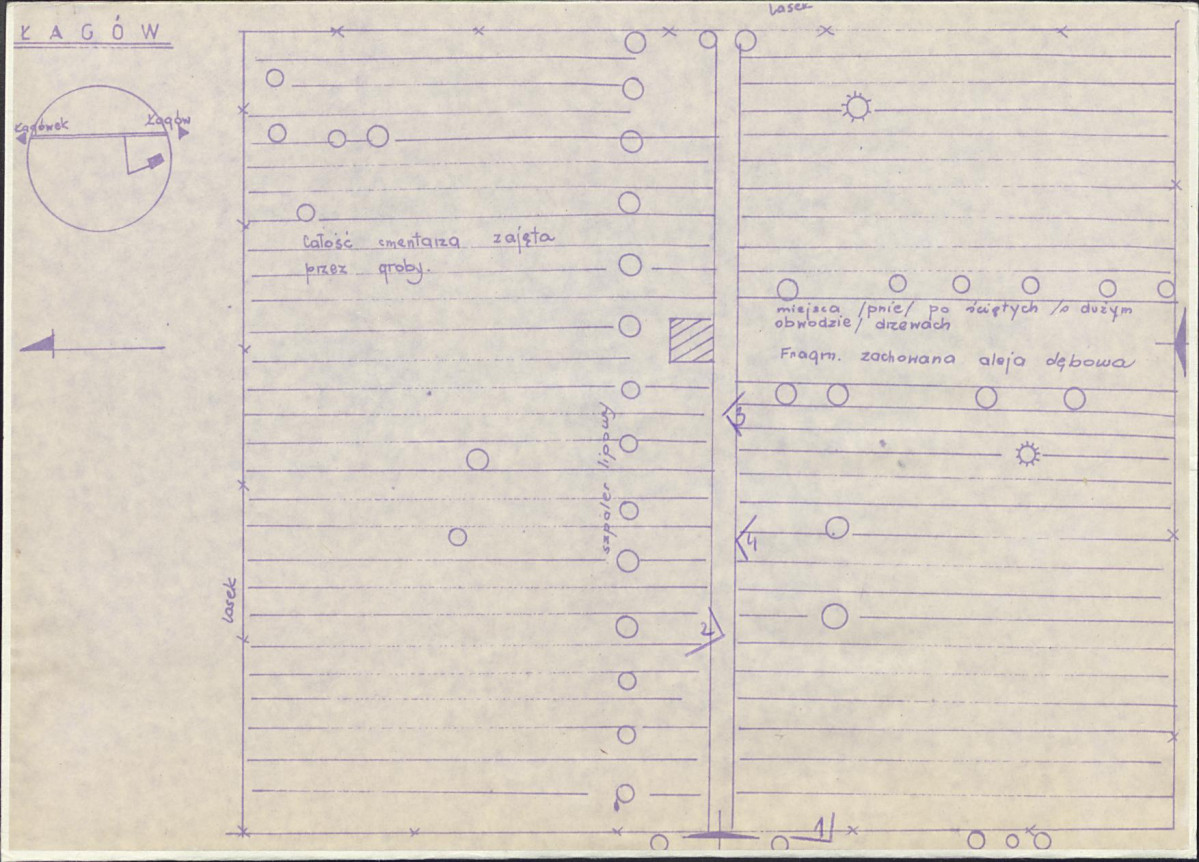 ŁAGÓW
Lasek
Łagówek
Łagów
Całość cmentarza zajęta
przez groby.
miejsca /pnie/ po ściętych /o dużym
obwodzie/ drzewach
Fragm. zachowana aleja dębowa
szpaler lipowy
3
4
Lasek
2
1